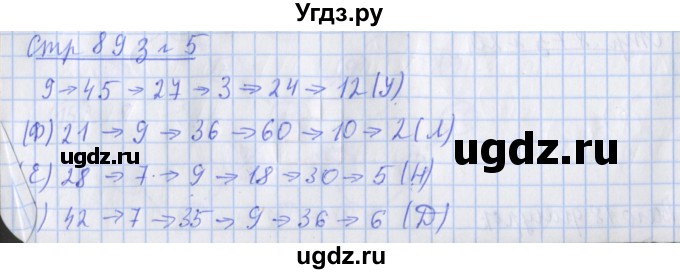 Угдз.ру
Стр 89 З № 5
9 → 45 → 27 → 3 → 24 → 12 (У)
(Ф) 21 → 9 → 36 → 60 → 10 → 2 (Л)
(Е) 28 → 7 → 9 → 18 → 30 → 5 (Н)
) 42 → 7 → 35 → 9 → 36 → 6 (Д)
©ugdz.ru
©ugdz.ru
ugdz.ru
ugdz.ru